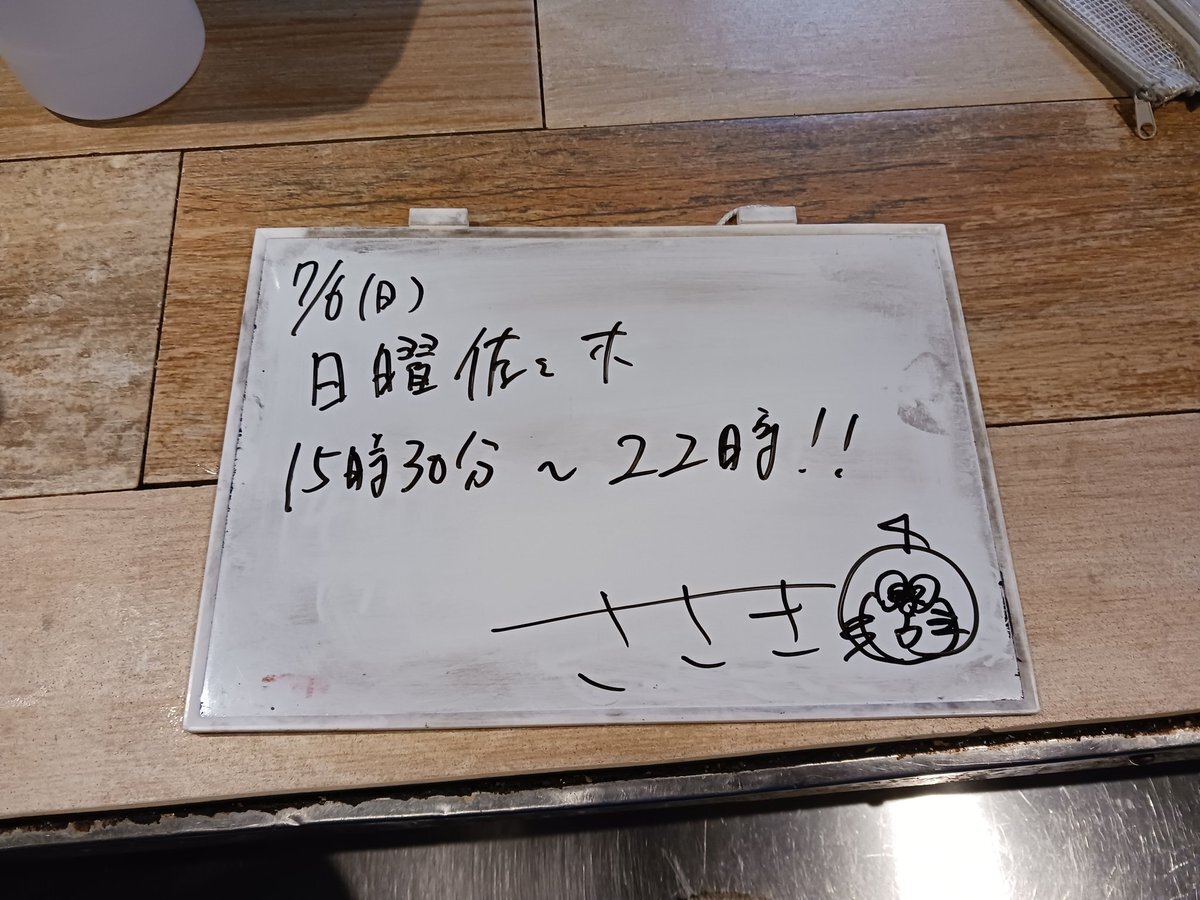 7/6(日)
日曜佐々木
15時30分～22時!!
ささき